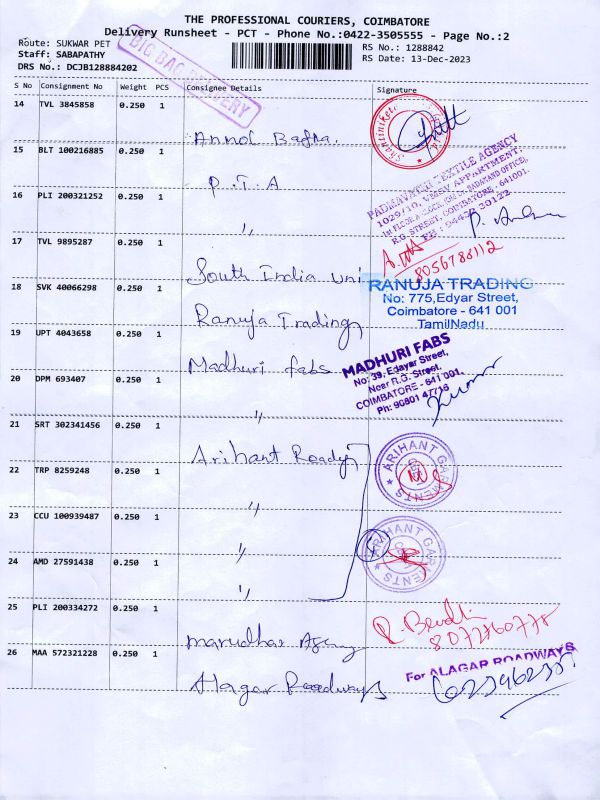 THE PROFESSIONAL COURIERS, COIMBATORE
Delivery Runsheet - PCT - Phone No.:0422-3505555 - Page No.:2
Route: SUKWAR PET
RS No.: 1288842
Staff: SABAPATHY
RS Date: 13-Dec-2023
DRS No.: DCJB128884202
BIG BAG DELIVERY
S No Consignment No Weight PCS Consignee Details Signature
14 TVL 3845858 0.250 1
Anmol Bafna
15 BLT 100216885 0.250 1
P.T.A
PADMAVATHI TEXTILE AGENCY
1029/10, VMSV APPARTMENT,
R.G. STREET, COIMBATORE - 641001.
16 PLI 200321252 0.250 1
〃
17 TVL 9895287 0.250 1
South India Uni
8056788112
18 SVK 40066298 0.250 1
Ranuja Trading
RANUJA TRADING
No: 775,Edyar Street,
Coimbatore - 641 001
TamilNadu
19 UPT 4043658 0.250 1
Madhuri fabs
MADHURI FABS
No: 39, Edayar Street,
Near R.G. Street,
COIMBATORE - 641 001.
Ph: 90801 47716
20 DPM 693407 0.250 1
〃
Kumar
21 SRT 302341456 0.250 1
Arihant Ready
ARIHANT GARMENTS
22 TRP 8259248 0.250 1
〃
23 CCU 100939487 0.250 1
〃
ARIHANT GARMENTS
24 AMD 27591438 0.250 1
〃
25 PLI 200334272 0.250 1
Marudhar Agency
26 MAA 572321228 0.250 1
Alagar Roadways
For ALAGAR ROADWAYS